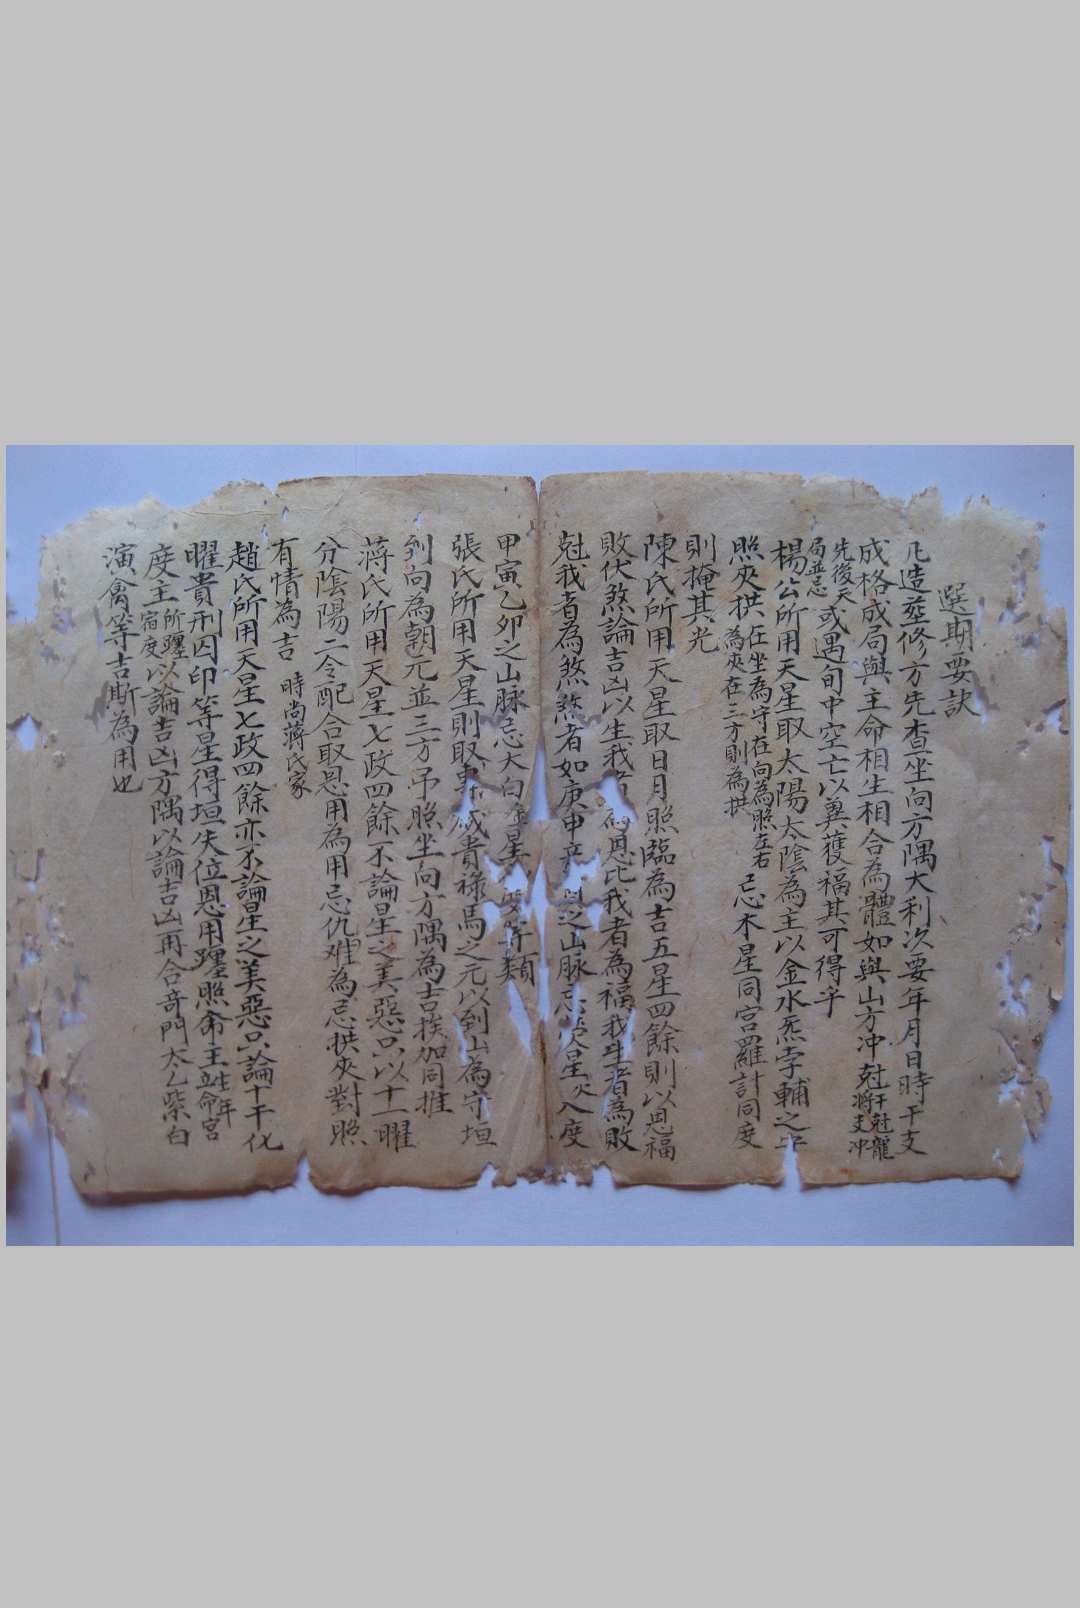 選期要訣
凡造葬修方先查坐向方隅大利次要年月日時干支
成格成局與主命相生相合為體如與山方冲尅干尅龍將支冲
先後天局並忌或遇旬中空亡以冀獲福其可得乎
楊公所用天星取太陽太陰為主以金水炁孛輔之
照夾拱在坐為守在向為照左右為夾在三方則為拱忌木星同宮羅計同度
則掩其光
陳氏所用天星取日月照臨為吉五星四餘則以恩福
敗伏煞論吉凶以生我恩比我者為福我生者為敗
尅我者為煞煞者如庚申之山脉忌熒星火入度
甲寅乙卯之山脉忌太白金星等類
張氏所用天星則取貴祿馬之元以到山為守垣
到向為朝元並三方吊照坐向方隅為吉挨加同推
蔣氏所用天星七政四餘不論星之美惡只以十一曜
分陰陽二令配合取恩用為用忌仇难為忌拱夾對照
有情為吉 時尚蔣氏家
趙氏所用天星七政四餘亦不論星之美惡只論十干化
曜貴刑囚印等星得垣失位恩用躔照命主年命宮
度主所躔宿度以論吉凶方隅以論吉凶再合奇門太乙紫白
演禽等吉斯為用也